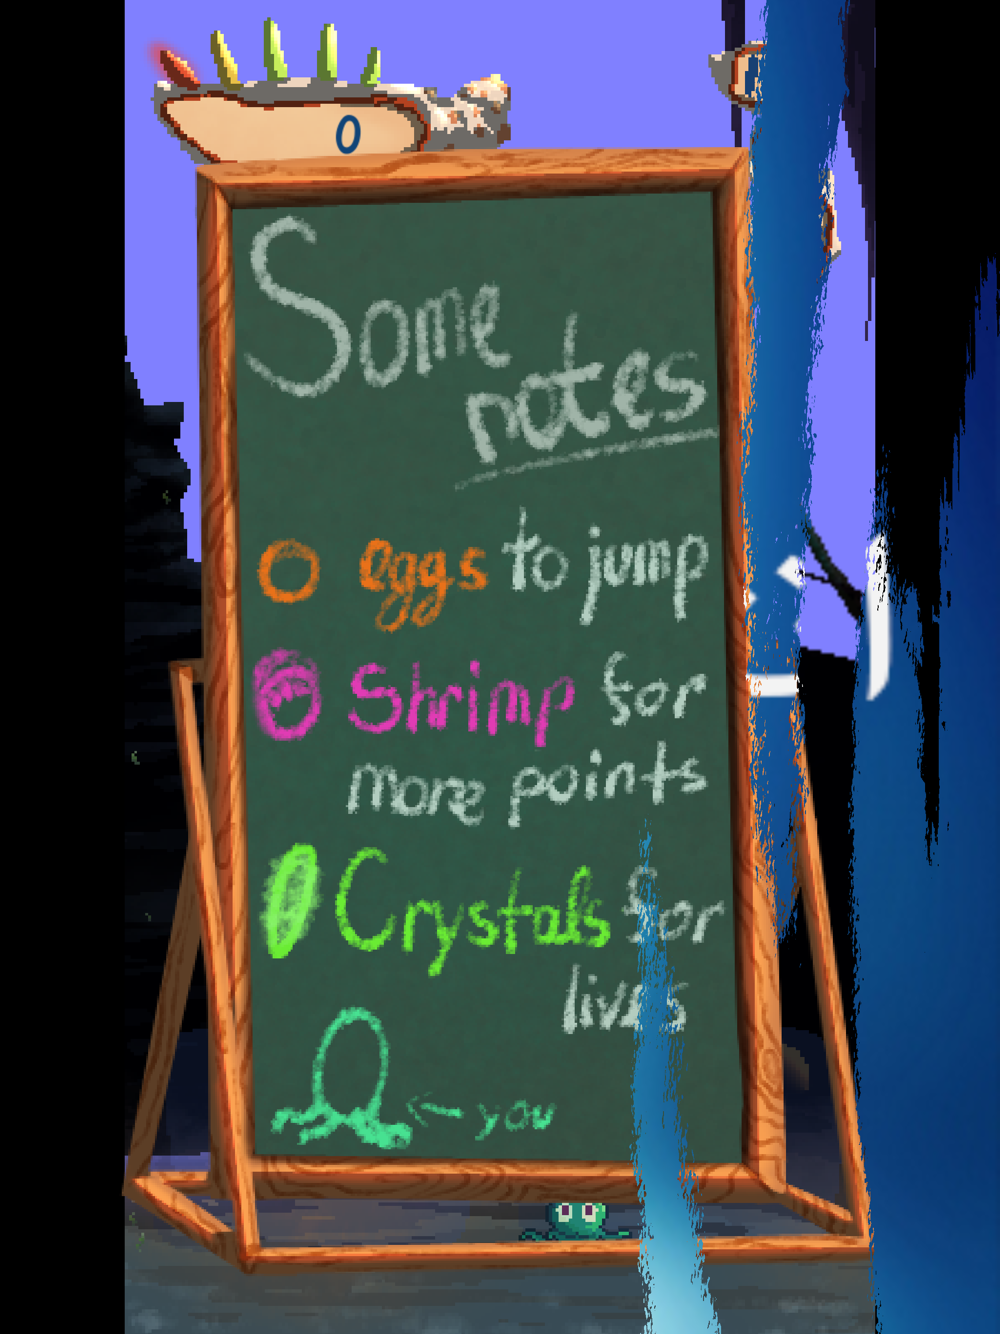 0
Some
notes
eggs to jump
Shrimp for
more points
Crystals for
lives
you